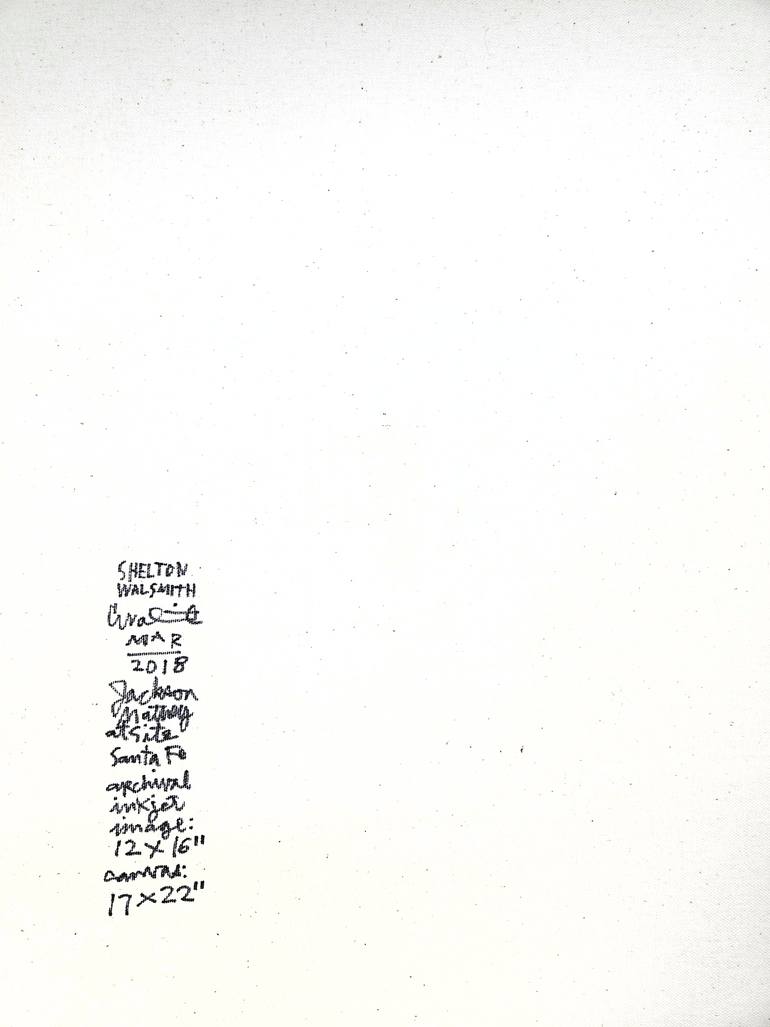 SHELTON
WALSMITH
MAR
2018
Jackson
at Site
Santa Fe
archival
inkjet
image:
12 x 16"
canvas:
17 x 22"